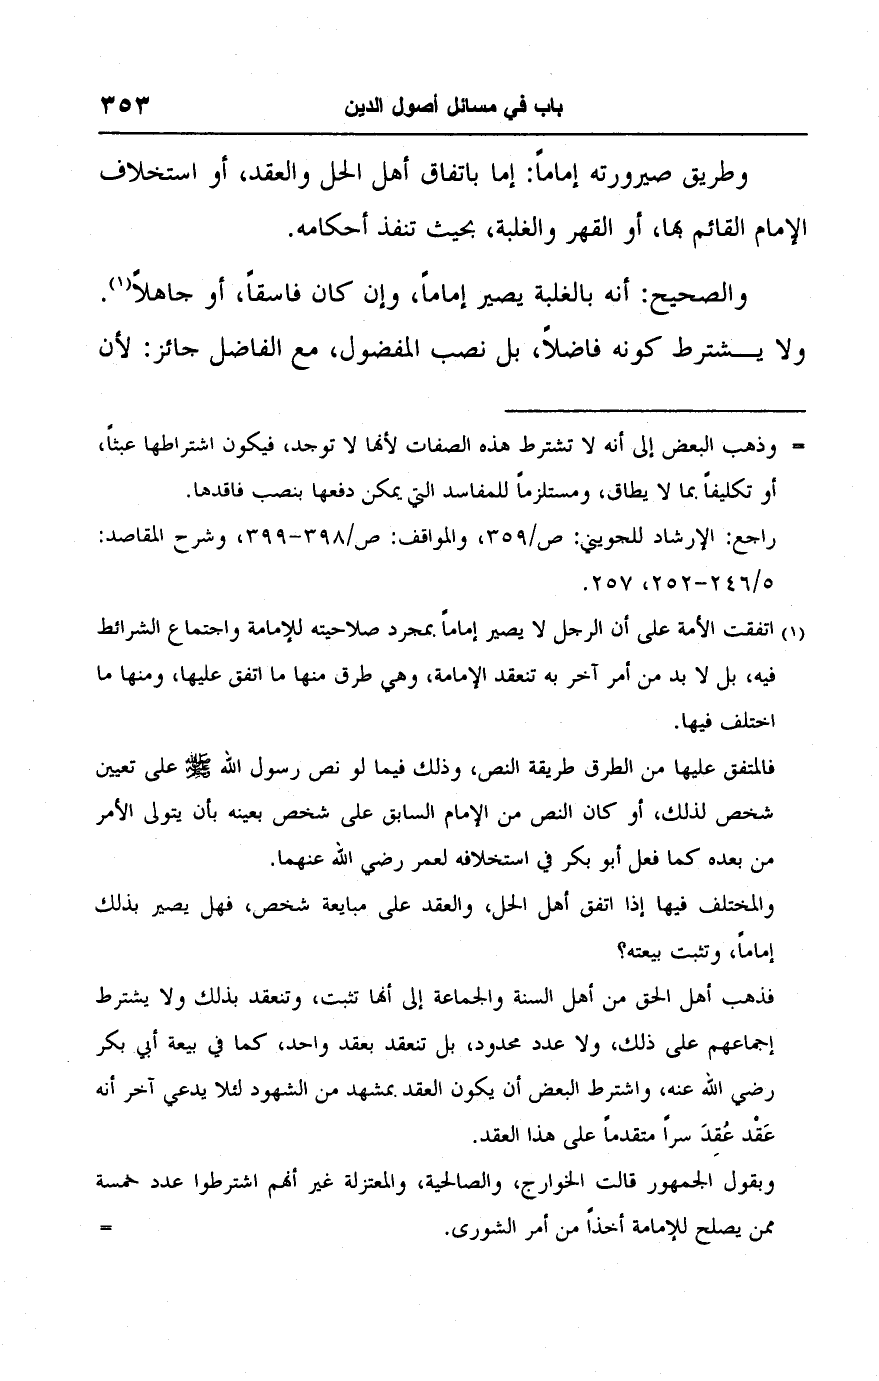 باب في مسائل أصول الدين ٣٥٣
وطريق صيرورته إماماً: إما باتفاق أهل الحل والعقد، أو استخلاف
الإمام القائم بها، أو القهر والغلبة، بحيث تنفذ أحكامه.
والصحيح: أنه بالغلبة يصير إماماً، وإن كان فاسقاً، أو جاهلاً(١).
ولا يـــشترط كونه فاضلاً، بل نصب المفضول، مع الفاضل جائز: لأن
= وذهب البعض إلى أنه لا تشترط هذه الصفات لأنها لا توجد، فيكون اشتراطها عبثاً،
أو تكليفاً بما لا يطاق، ومستلزماً للمفاسد التي يمكن دفعها بنصب فاقدها.
راجع: الإرشاد للجويني: ص/٣٥٩، والمواقف: ص/٣٩٨-٣٩٩، وشرح المقاصد:
٢٤٦/٥-٢٥٢، ٢٥٧.
(١) اتفقت الأمة على أن الرجل لا يصير إماماً بمجرد صلاحيته للإمامة واجتماع الشرائط
فيه، بل لا بد من أمر آخر به تنعقد الإمامة، وهي طرق منها ما اتفق عليها، ومنها ما
اختلف فيها.
فالمتفق عليها من الطرق طريقة النص، وذلك فيما لو نص رسول الله ﷺ على تعيين
شخص لذلك، أو كان النص من الإمام السابق على شخص بعينه بأن يتولى الأمر
من بعده كما فعل أبو بكر في استخلافه لعمر رضي الله عنهما.
والمختلف فيها إذا اتفق أهل الحل، والعقد على مبايعة شخص، فهل يصير بذلك
إماماً، وتثبت بيعته؟
فذهب أهل الحق من أهل السنة والجماعة إلى أنها تثبت، وتنعقد بذلك ولا يشترط
إجماعهم على ذلك، ولا عدد محدود، بل تنعقد بعقد واحد، كما في بيعة أبي بكر
رضي الله عنه، واشترط البعض أن يكون العقد بمشهد من الشهود لئلا يدعي آخر أنه
عَقْد عُقِدَ سراً متقدماً على هذا العقد.
وبقول الجمهور قالت الخوارج، والصالحية، والمعتزلة غير أنهم اشترطوا عدد خمسة
ممن يصلح للإمامة أخذاً من أمر الشورى. =